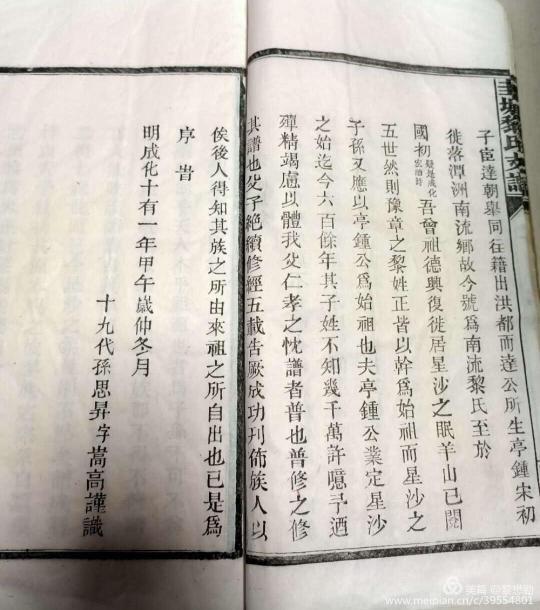 圭塘黎氏支譜
子臣達朝舉同往籍出洪都而達公所生亭鍾宋初
徙落潭洲南流鄉故今號爲南流黎氏至於
國初疑是成化宏治時吾曾祖德興復徙居星沙之眠羊山已閱
五世然則豫章之黎姓正皆以幹爲始祖而星沙之
子孫又應以亭鍾公爲始祖也夫亭鍾公業定星沙
之始迄今六百餘年其子姓不知幾千萬許噫予迺
殫精竭慮以體我父仁孝之忱譜者普也普修之修
其譜也父子絶續修經五載告厥成功刋佈族人以
俟後人得知其族之所由來祖之所自出也已是爲
序旹
明成化十有一年甲午歲仲冬月
十九代孫思昇字嵩高謹識
美篇
www.meipian.cn/c/39554801